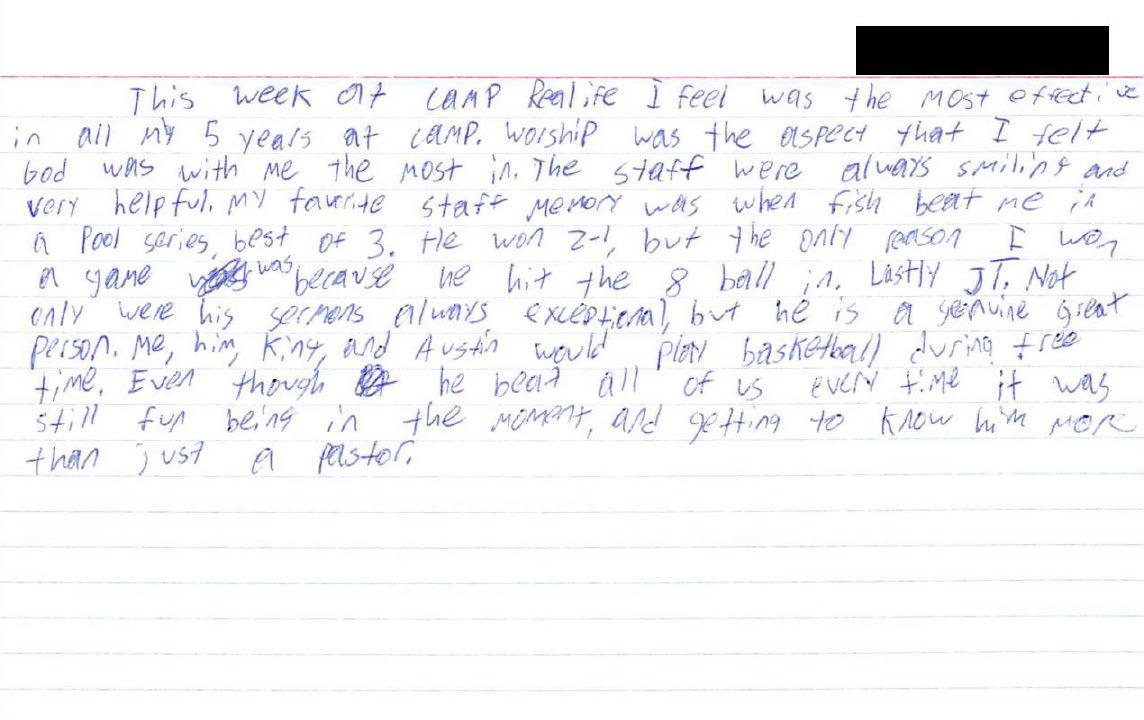 This week at camp Realife I feel was the most effective
in all my 5 years at camp. Worship was the aspect that I felt
God was with me the most in. The staff were always smiling and
very helpful. My favorite staff memory was when fish beat me in
a pool series, best of 3. He won 2-1, but the only reason I won
a game was because he hit the 8 ball in. Lastly JT. Not
only were his sermons always exceptional, but he is a genuine great
person. Me, him, King, and Austin would play basketball during free
time. Even though he beat all of us every time it was
still fun being in the moment, and getting to know him more
than just a pastor.